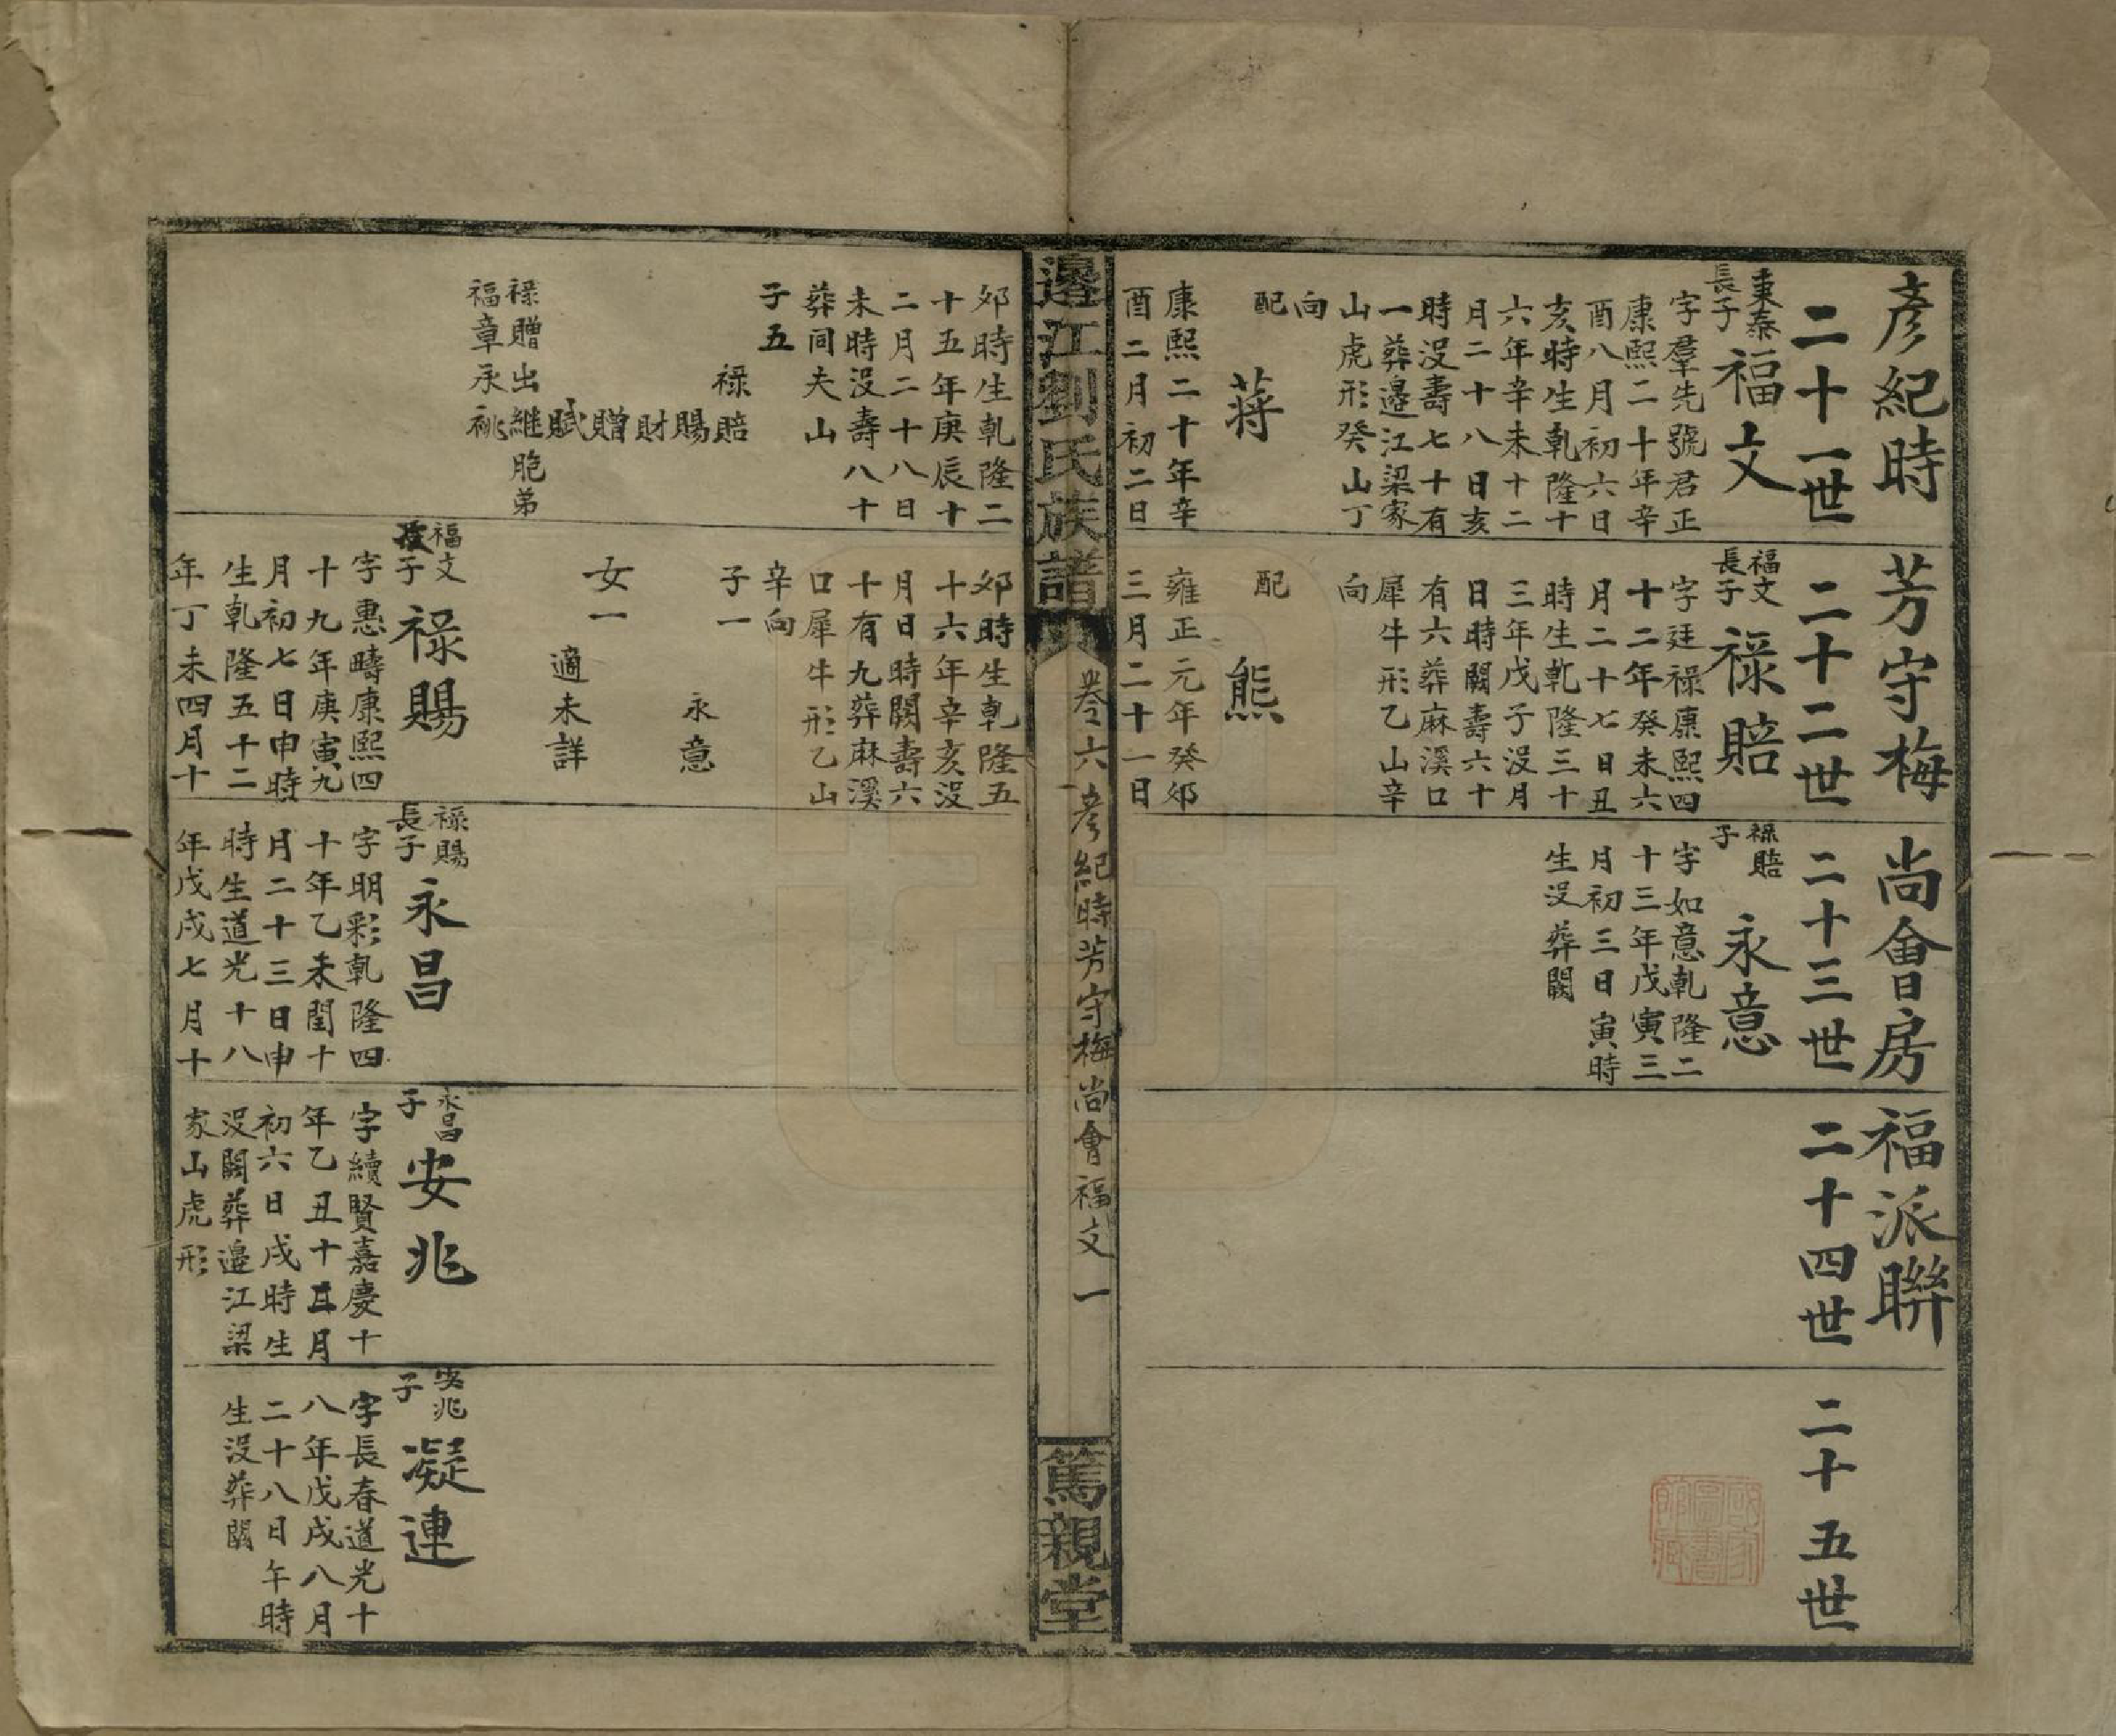 彥紀時芳守梅尚會房福派聯
二十一世
東泰長子
福文
字羣先號君正
康熙二十年辛
酉八月初六日
亥時生乹隆十
六年辛未十二
月二十八日亥
時没壽七十有
一葬邉江梁家
山虎形癸山丁
向
配
蔣
康熙二十年辛
酉二月初二日
夘時生乹隆二
十五年庚辰十
二月二十八日
未時没壽八十
葬同夫山
子五
祿賠
賜
財
贈
賦
祿贈出継胞弟
福章承祧
二十二世
福文長子
祿賠
字廷祿康熙四
十二年癸未六
月二十七日丑
時生乹隆三十
三年戊子没月
日時闕壽六十
有六葬麻溪口
犀牛形乙山辛
向
配
熊
雍正元年癸夘
三月二十一日
夘時生乹隆五
十六年辛亥没
月日時闕壽六
十有九葬麻溪
口犀牛形乙山
辛向
子一
永意
女一
適未詳
福文次子
祿賜
字惠疇康熙四
十九年庚寅九
月初七日申時
生乹隆五十二
年丁未四月十
二十三世
祿賠子
永意
字如意乹隆二
十三年戊寅三
月初三日寅時
生没葬闕
祿賜長子
永昌
字明彩乹隆四
十年乙未閏十
月二十三日申
時生道光十八
年戊戌七月十
二十四世
永昌子
安兆
字續賢嘉慶十
年乙丑十二月
初六日戌時生
没闕葬邉江梁
家山虎形
二十五世
安兆子
凝連
字長春道光十
八年戊戌八月
二十八日午時
生没葬闕
邉江劉氏族譜
卷六 彥紀時芳守梅尚會福文 一
篤親堂
國家圖書館藏